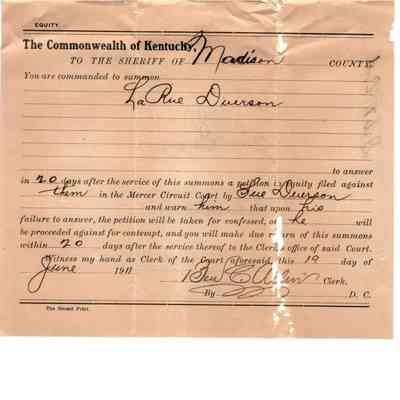 EQUITY.
The Commonwealth of Kentucky,
TO THE SHERIFF OF Madison COUNTY
You are commanded to summon
LaRue Duerson
to answer
in 20 days after the service of this summons a petition in equity filed against
them in the Mercer Circuit Court by Sue Duerson
and warn him that upon his
failure to answer, the petition will be taken for confessed, or he will
be proceeded against for contempt, and you will make due return of this summons
within 20 days after the service thereof to the Clerk's office of said Court.
Witness my hand as Clerk of the Court aforesaid, this 19 day of
June 1911 Ben C Allin Clerk.
By D. C.